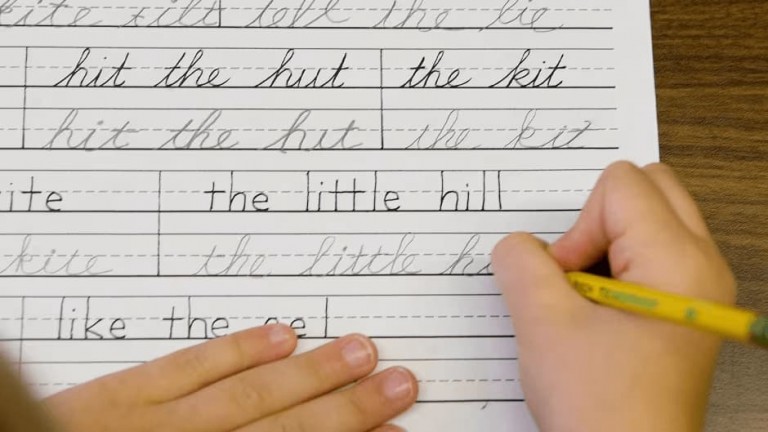 kite tell the lie
hit the hut the kit
hit the hut the kit
ite the little hill
kite the little hi
like the eel